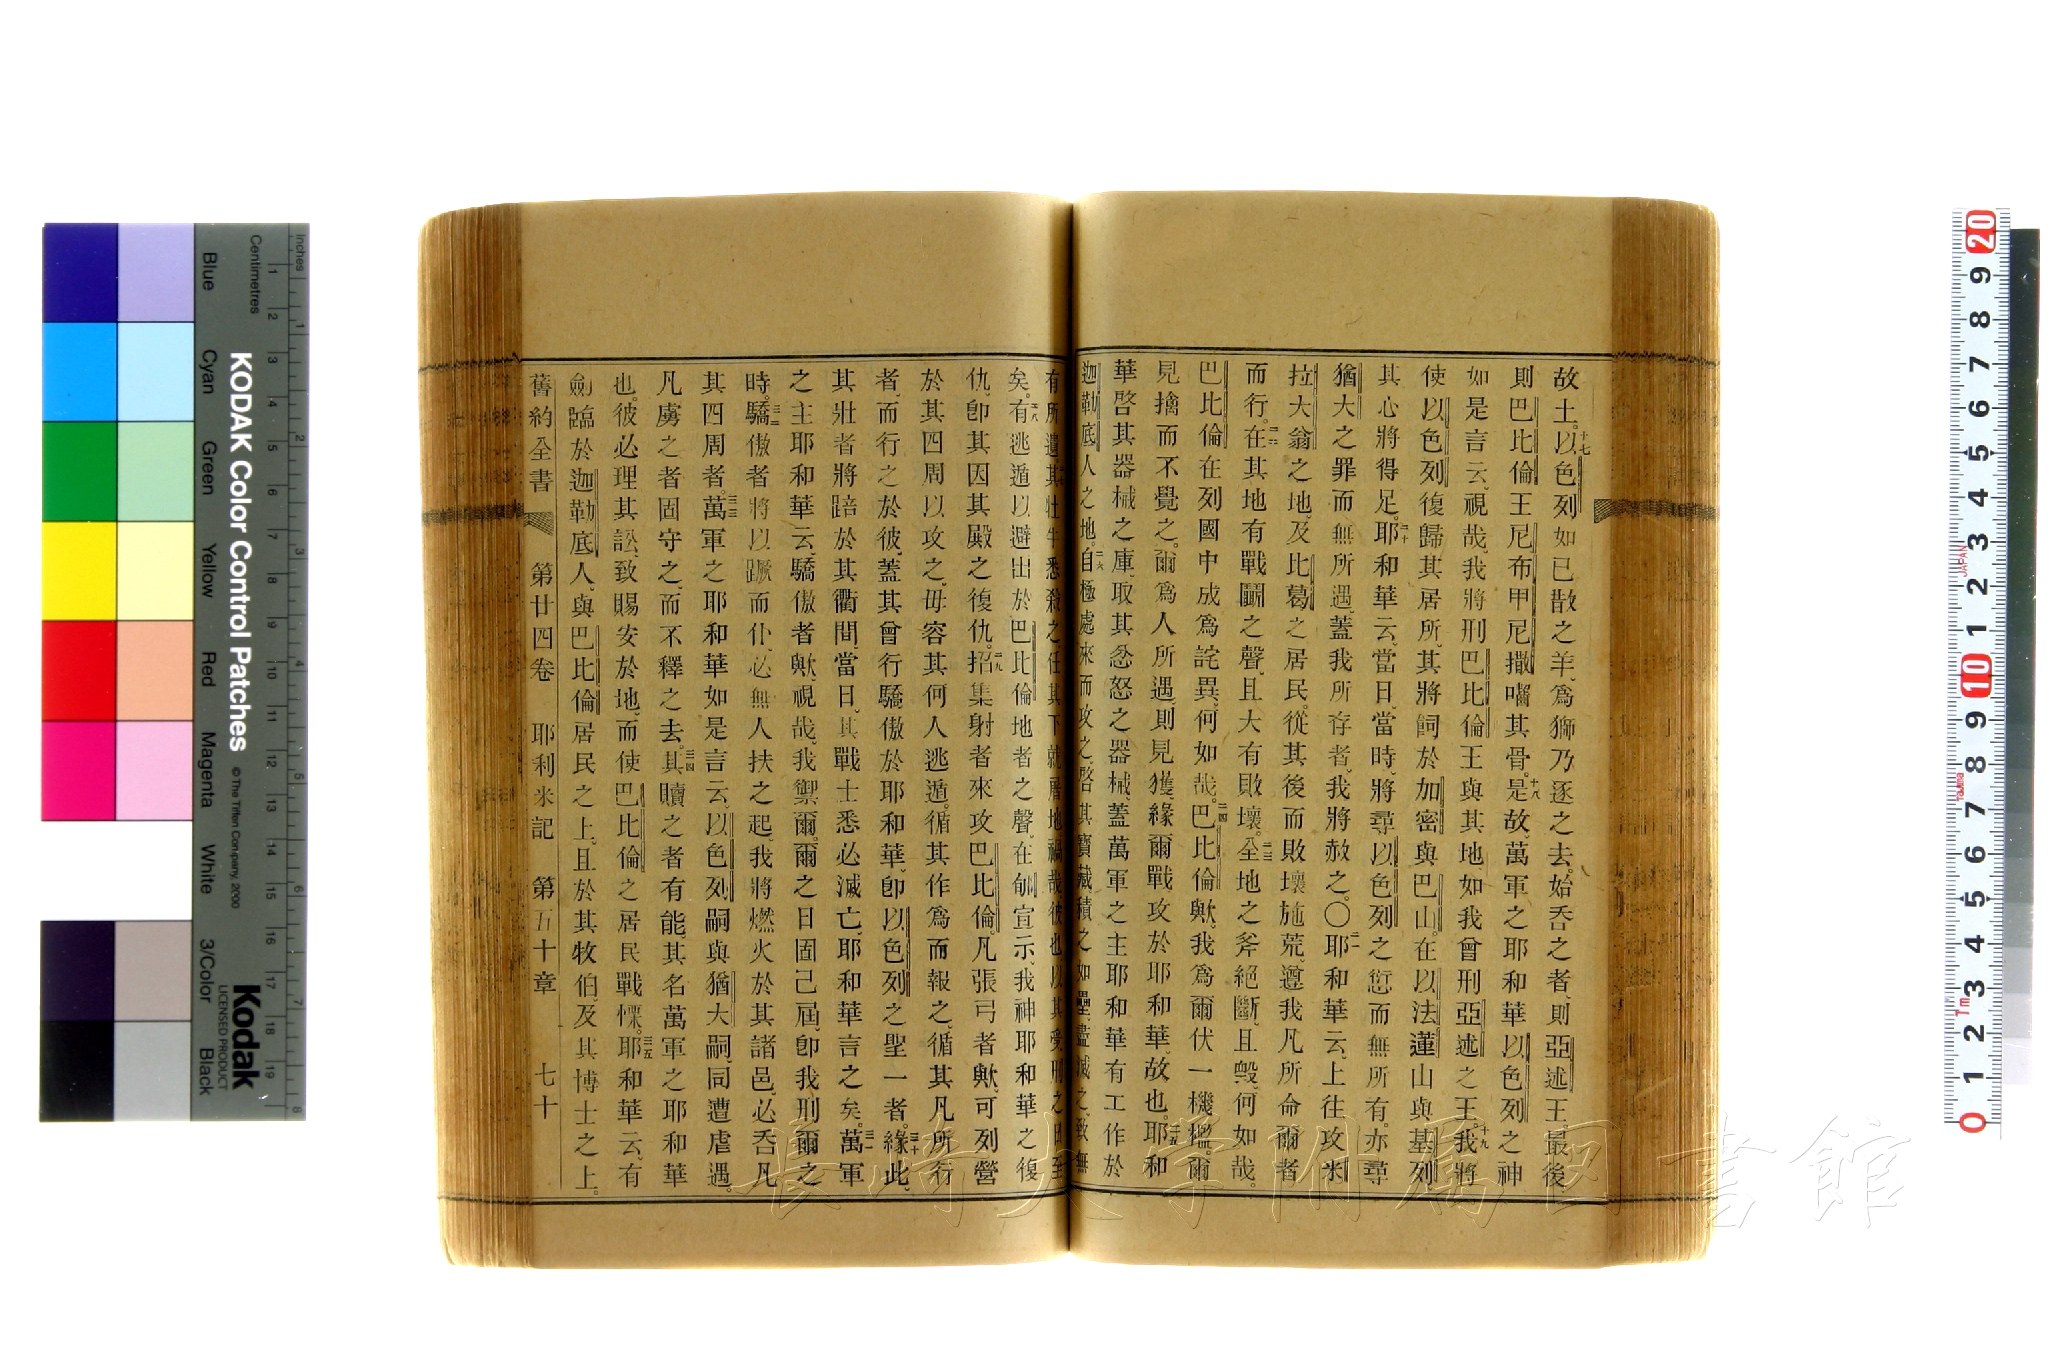 故土。十七以色列如已散之羊、爲獅乃逐之去。始吞之者、則亞述王。最後
則巴比倫王尼布甲尼撒囓其骨。十八是故、萬軍之耶和華以色列之神
如是言云、視哉、我將刑巴比倫王與其地、如我曾刑亞述之王。十九我將
使以色列復歸其居所、其將飼於加密與巴山。在以法蓮山與基列
其心將得足。二十耶和華云、當日、當時、將尋以色列之愆而無所有。亦尋
猶大之罪而無所遇、蓋我所存者、我將赦之。〇二一耶和華云、上往攻米
拉大翁之地、及比葛之居民。從其後而敗壞施荒。遵我凡所命爾者
而行。二二在其地有戰鬭之聲、且大有敗壞。二三全地之斧絕斷、且毁、何如哉。
巴比倫在列國中成爲詫異、何如哉。二四巴比倫歟、我爲爾伏一機檻。爾
見擒而不覺之。爾爲人所遇、則見獲、緣爾戰攻於耶和華、故也。二五耶和
華啓其器械之庫、取其忿怒之器械、蓋萬軍之主耶和華有工作於
迦勒底人之地。二六自極處來而攻之、啓其寶藏、積之如壘、盡滅之、致無
有所遺。其牡牛悉殺之、任其下就屠地、禍哉彼也、以其受刑之日至
矣。二八有逃遁以避出於巴比倫地者之聲、在郇宣示、我神耶和華之復
仇、卽其因其殿之復仇。二九招集射者來攻巴比倫、凡張弓者歟、可列營
於其四周以攻之、毋容其何人逃遁。循其作爲而報之、循其凡所行
者、而行之於彼、蓋其曾行驕傲於耶和華、卽以色列之聖一者。三十緣此、
其壯者將踣於其衢間、當日、其戰士悉必滅亡、耶和華言之矣。三一萬軍
之主耶和華云、驕傲者歟、視哉、我禦爾、爾之日固己屆、卽我刑爾之
時。三二驕傲者將以蹶而仆、必無人扶之起。我將燃火於其諸邑、必吞凡
其四周者。三三萬軍之耶和華如是言云、以色列嗣與猶大嗣、同遭虐遇。
凡虜之者固守之、而不釋之去。三四其贖之者有能。其名萬軍之耶和華
也。彼必理其訟、致賜安於地、而使巴比倫之居民戰慄。三五耶和華云、有
劍臨於迦勒底人、與巴比倫居民之上、且於其牧伯、及其博士之上。
舊約全書 第廿四卷 耶利米記 第五十章 七十
KODAK Color Control Patches
©The Tiffen Company, 2000
Kodak
LICENSED PRODUCT
Inches
Centimetres
Blue
Cyan
Green
Yellow
Red
Magenta
White
3/Color
Black
JAPAN
Tajima
長崎大学附属図書館